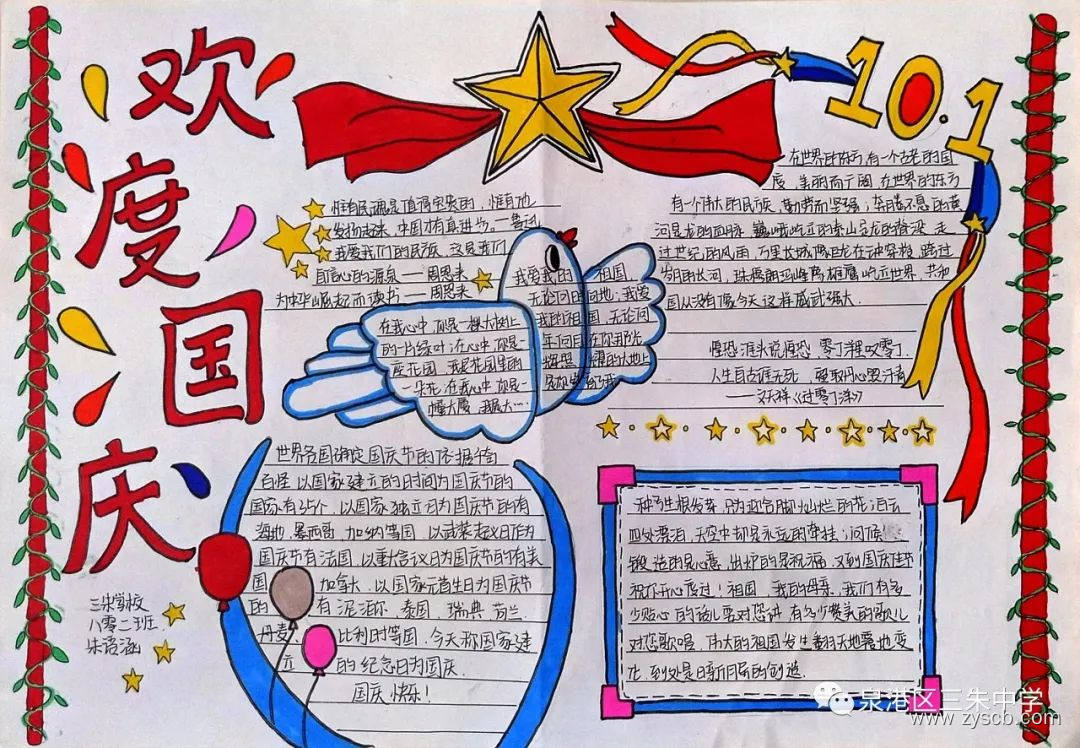 欢度国庆
10.1
惟有民魂是值得宝贵的，惟有他
发扬起来，中国才有真进步。——鲁迅
我爱我们的民族，这是我们
自信心的源泉——周恩来
为中华崛起而读书——周恩来
在世界的东方有一个古老的国
度，美丽而宁阔，在世界的东方
有一个伟大的民族，勤劳而坚强；奔腾不息的黄
河是龙的血脉，巍峨屹立的泰山是龙的脊梁，走
过世纪的风雨，万里长城像巨龙在神穿梭，跨过
岁月的长河，珠穆朗玛峰雄鹰屹立世界，共和
国从没有像今天这样威武强大。
惶恐滩头说惶恐，零丁洋里叹零丁。
人生自古谁无死，留取丹心照汗青
——文天祥《过零丁洋》
我爱我的祖国，
无论何的何地，我爱
我的祖国，无论何
年何月在你那光
辉照耀的大地上
在我心中，你是一棵大树上
的一片绿叶；在心中，你是一
座花园，我是花园里的
一朵花；在我心中，你是一
幢大厦，我是大……
世界各国确定国庆节的依据千奇
百怪，以国家建立的时间为国庆节的
国家有35个，以国家独立日为国庆节的有
海地、墨西哥、加纳等国，以武装起义日作为
国庆节有法国，以重大会议日为国庆节的有美
国 加拿大，以国家元首生日为国庆节
的 有泥泊尔、泰国、瑞典、荷兰、
丹麦、比利时等国，今天称国家建
立的纪念日为国庆。
国庆快乐！
种子生根发芽，只为迎合那灿烂的花；白云
四处漂泊，天空中却是永远的牵挂；问候
锻造的是心意，出炉的是祝福，又到国庆佳节
祝你开心度过！祖国，我的母亲，我们有多
少贴心的话儿要对您讲，有多少赞美的歌儿
对您歌唱，伟大的祖国发生翻天地覆地变
化，到处是日新月异的创造
三朱学校
八零二班
朱语涵
泉港区三朱中学
www.zyscb.com